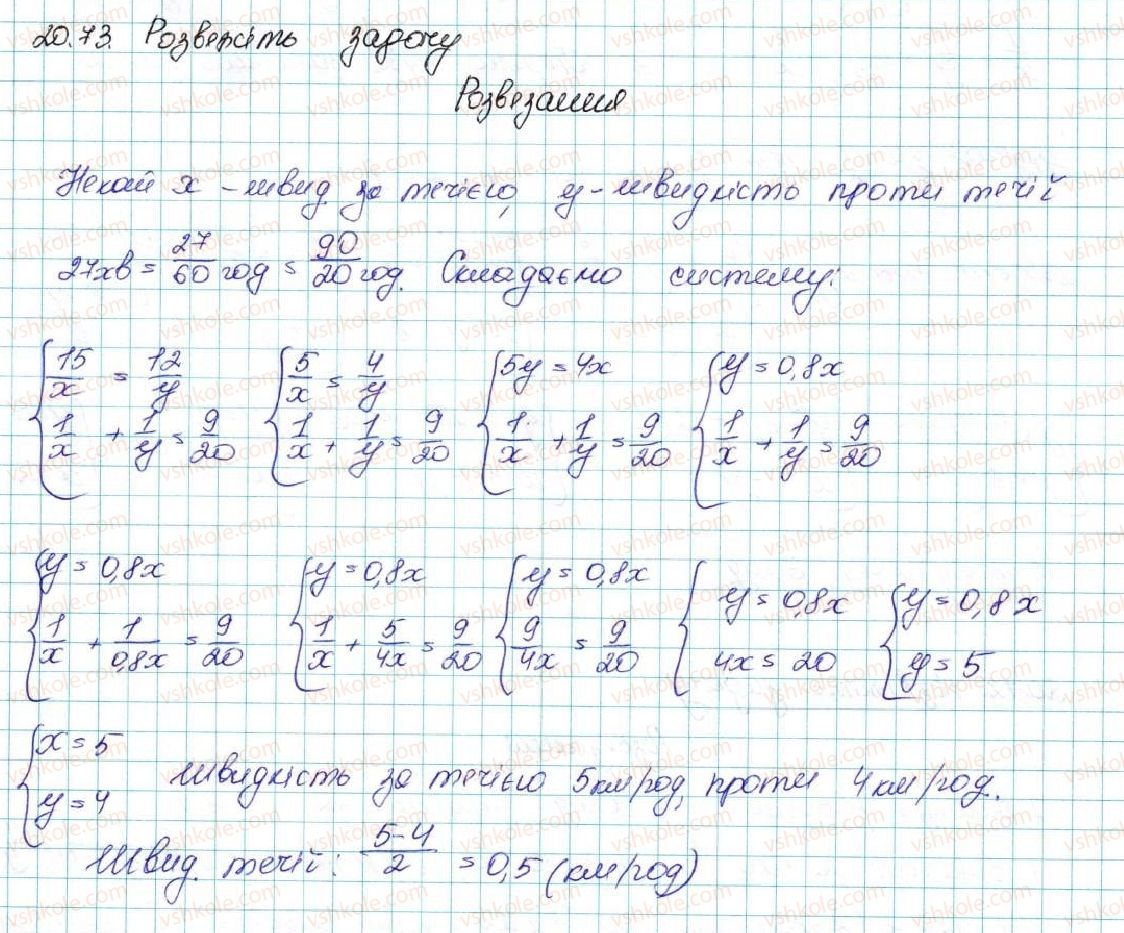 20.73. Розвежіть задачу
Розвезання
Нехай x – швид. за течією, y – швидкістю проти течії
27хв = 27/60 год = 90/20 год. Складаємо систему:
{ 15/x = 12/y { 5/x = 4/y { 5y = 4x { y = 0,8x
1/x + 1/y = 9/20 1/x + 1/y = 9/20 1/x + 1/y = 9/20 1/x + 1/y = 9/20
{ y = 0,8x { y = 0,8x { y = 0,8x { y = 0,8x { y = 0,8x
1/x + 1/0,8x = 9/20 1/x + 5/4x = 9/20 9/4x = 9/20 4x = 20 y = 5
{ x = 5
y = 4 швидкість за течією 5км/год, проти 4км/год.
Швид. течії: 5-4/2 = 0,5 (км/год)
vshkole.com